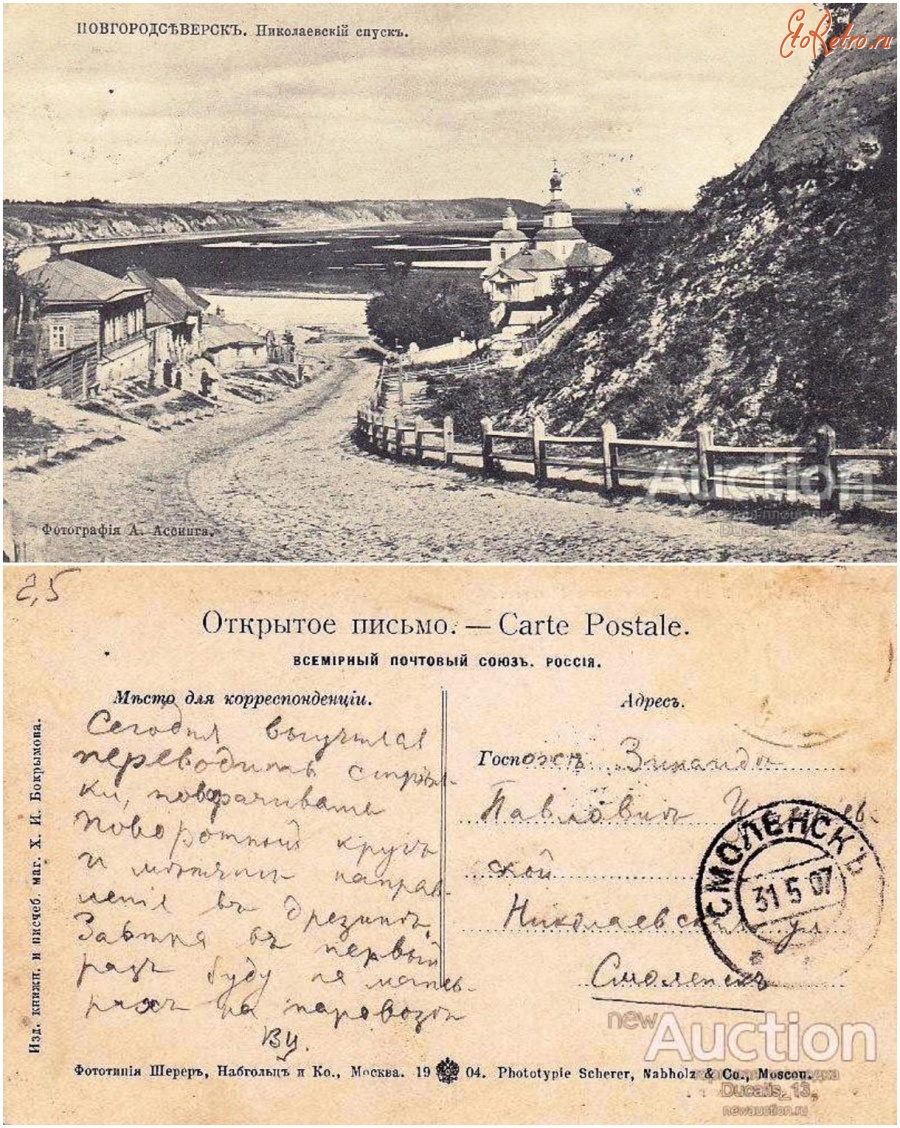 НОВГОРОДСѢВЕРСКЪ. Николаевскій спускъ.
EtoRetro.ru
Auction
Ducalis
Фотографія А. Ассинга.
2,5
Открытое письмо. — Carte Postale.
ВСЕМІРНЫЙ ПОЧТОВЫЙ СОЮЗЪ. РОССІЯ.
Мѣсто для корреспонденціи.
Сегодня выучился
переводить стрѣл-
ки, поворачивать
поворотный кругъ
и мѣнять направ-
ленія въ дрезинѣ.
Завтра въ первый
разъ буду на манев-
рахъ на паровозѣ
ВЦ.
Адресъ.
Госпожѣ Зинаидѣ
Павловнѣ
ской
Николаевская ул
Смоленскъ
СМОЛЕНСКЪ
31 5 07
Изд. книжн. и писчеб. маг. Х. И. Бокрымова.
Фототипія Шереръ, Набгольцъ и Ко., Москва. 19 04. Phototypie Scherer, Nabholz & Co., Moscou.
newAuction
Ducalis_13,
newauction.ru